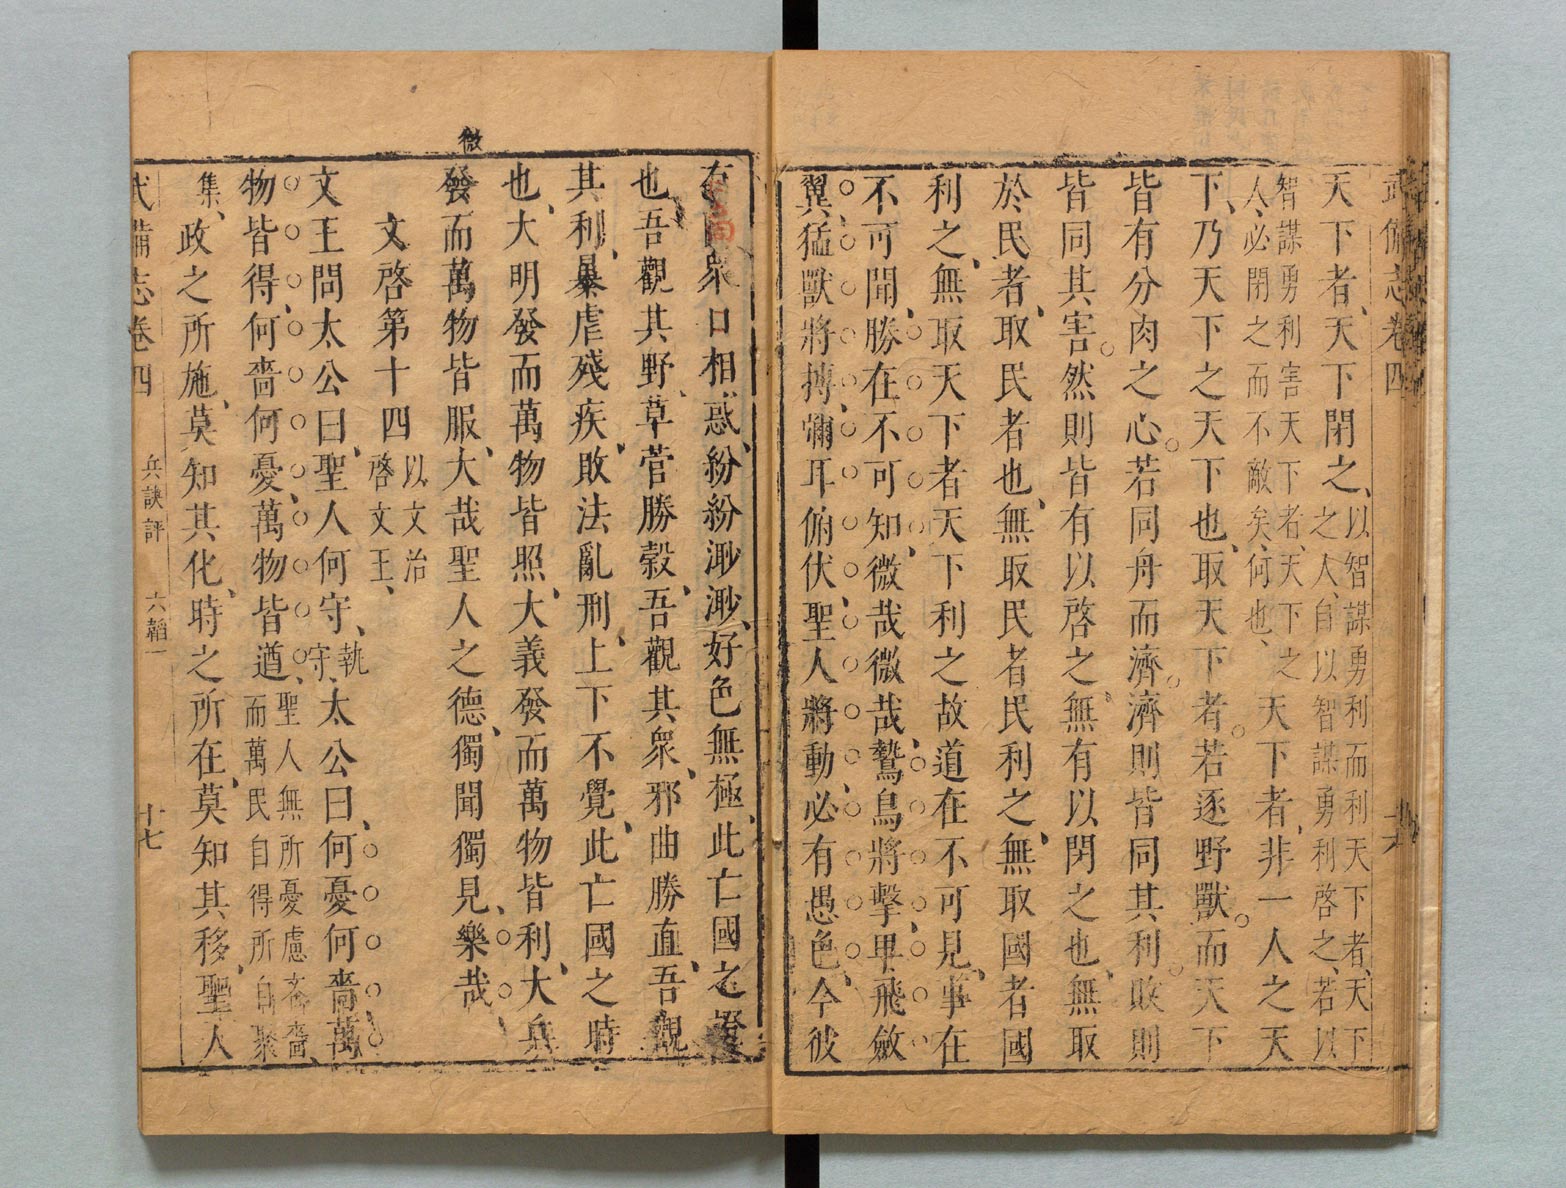 武備志卷四
天下者、天下閉之、以智謀勇利而利天下者、天下之人、自以智謀勇利啓之、若以
智謀勇利害天下者、天下之人、必閉之而不敵矣、何也、天下者、非一人之天
下、乃天下之天下也、取天下者。若逐野獸。而天下
皆有分肉之心。若同舟而濟。濟則皆同其利。敗則
皆同其害。然則皆有以啓之、無有以閉之也、無取
於民者、取民者也、無取民者民利之、無取國者國
利之、無取天下者天下利之故道在不可見、事在
不可聞、勝在不可知、微哉微哉、鷙鳥將擊、卑飛斂
翼猛獸將搏、彌耳俯伏聖人將動、必有愚色、今彼
衆口相惑、紛紛渺渺、好色無極、此亡國之
也、吾觀其野、草菅勝穀、吾觀其衆、邪曲勝直、吾觀
其利、暴虐殘疾、敗法亂刑、上下不覺、此亡國之時
也、大明發而萬物皆照、大義發而萬物皆利、大兵
微
發而萬物皆服、大哉聖人之德、獨聞獨見、樂哉、
文啓第十四 以文治啓文王、
文王問太公曰、聖人何守、執守、太公曰、何憂何嗇萬
物皆得、何嗇何憂、萬物皆遒、聖人無所憂慮吝嗇、而萬民自得所自聚
集、政之所施、莫知其化、時之所在、莫知其移、聖人
武備志卷四 兵訣評 六韜一 十七